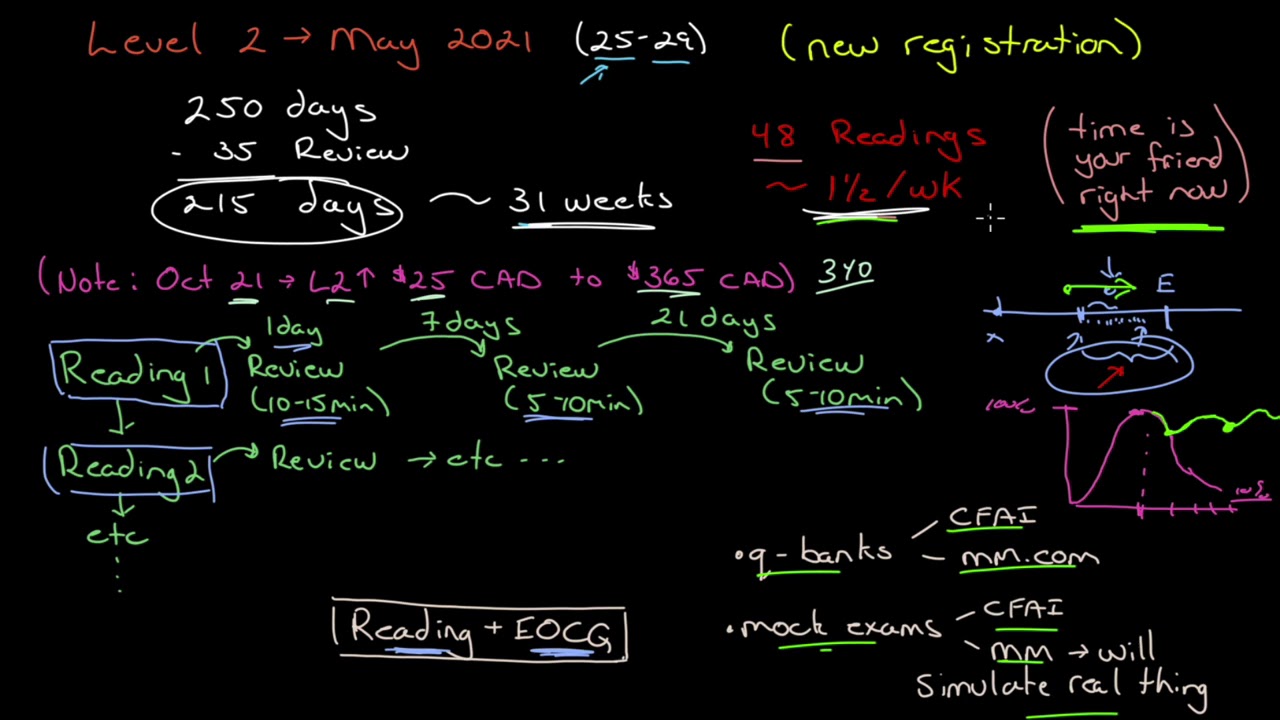 Level 2 → May 2021 (25-29) (new registration)
250 days
- 35 Review
215 days ~ 31 weeks
48 Readings
~ 1½/wk
(time is
your friend
right now)
(Note: Oct 21 → L2↑ $25 CAD to $365 CAD) 340
E
1day 7days 21 days
Reading 1 Review Review Review
(10-15min) (5-10min) (5-10min)
Reading 2 Review → etc ...
etc
• q-banks CFAI
mm.com
• mock exams CFAI
mm → will
simulate real thing
Reading + EOCQ